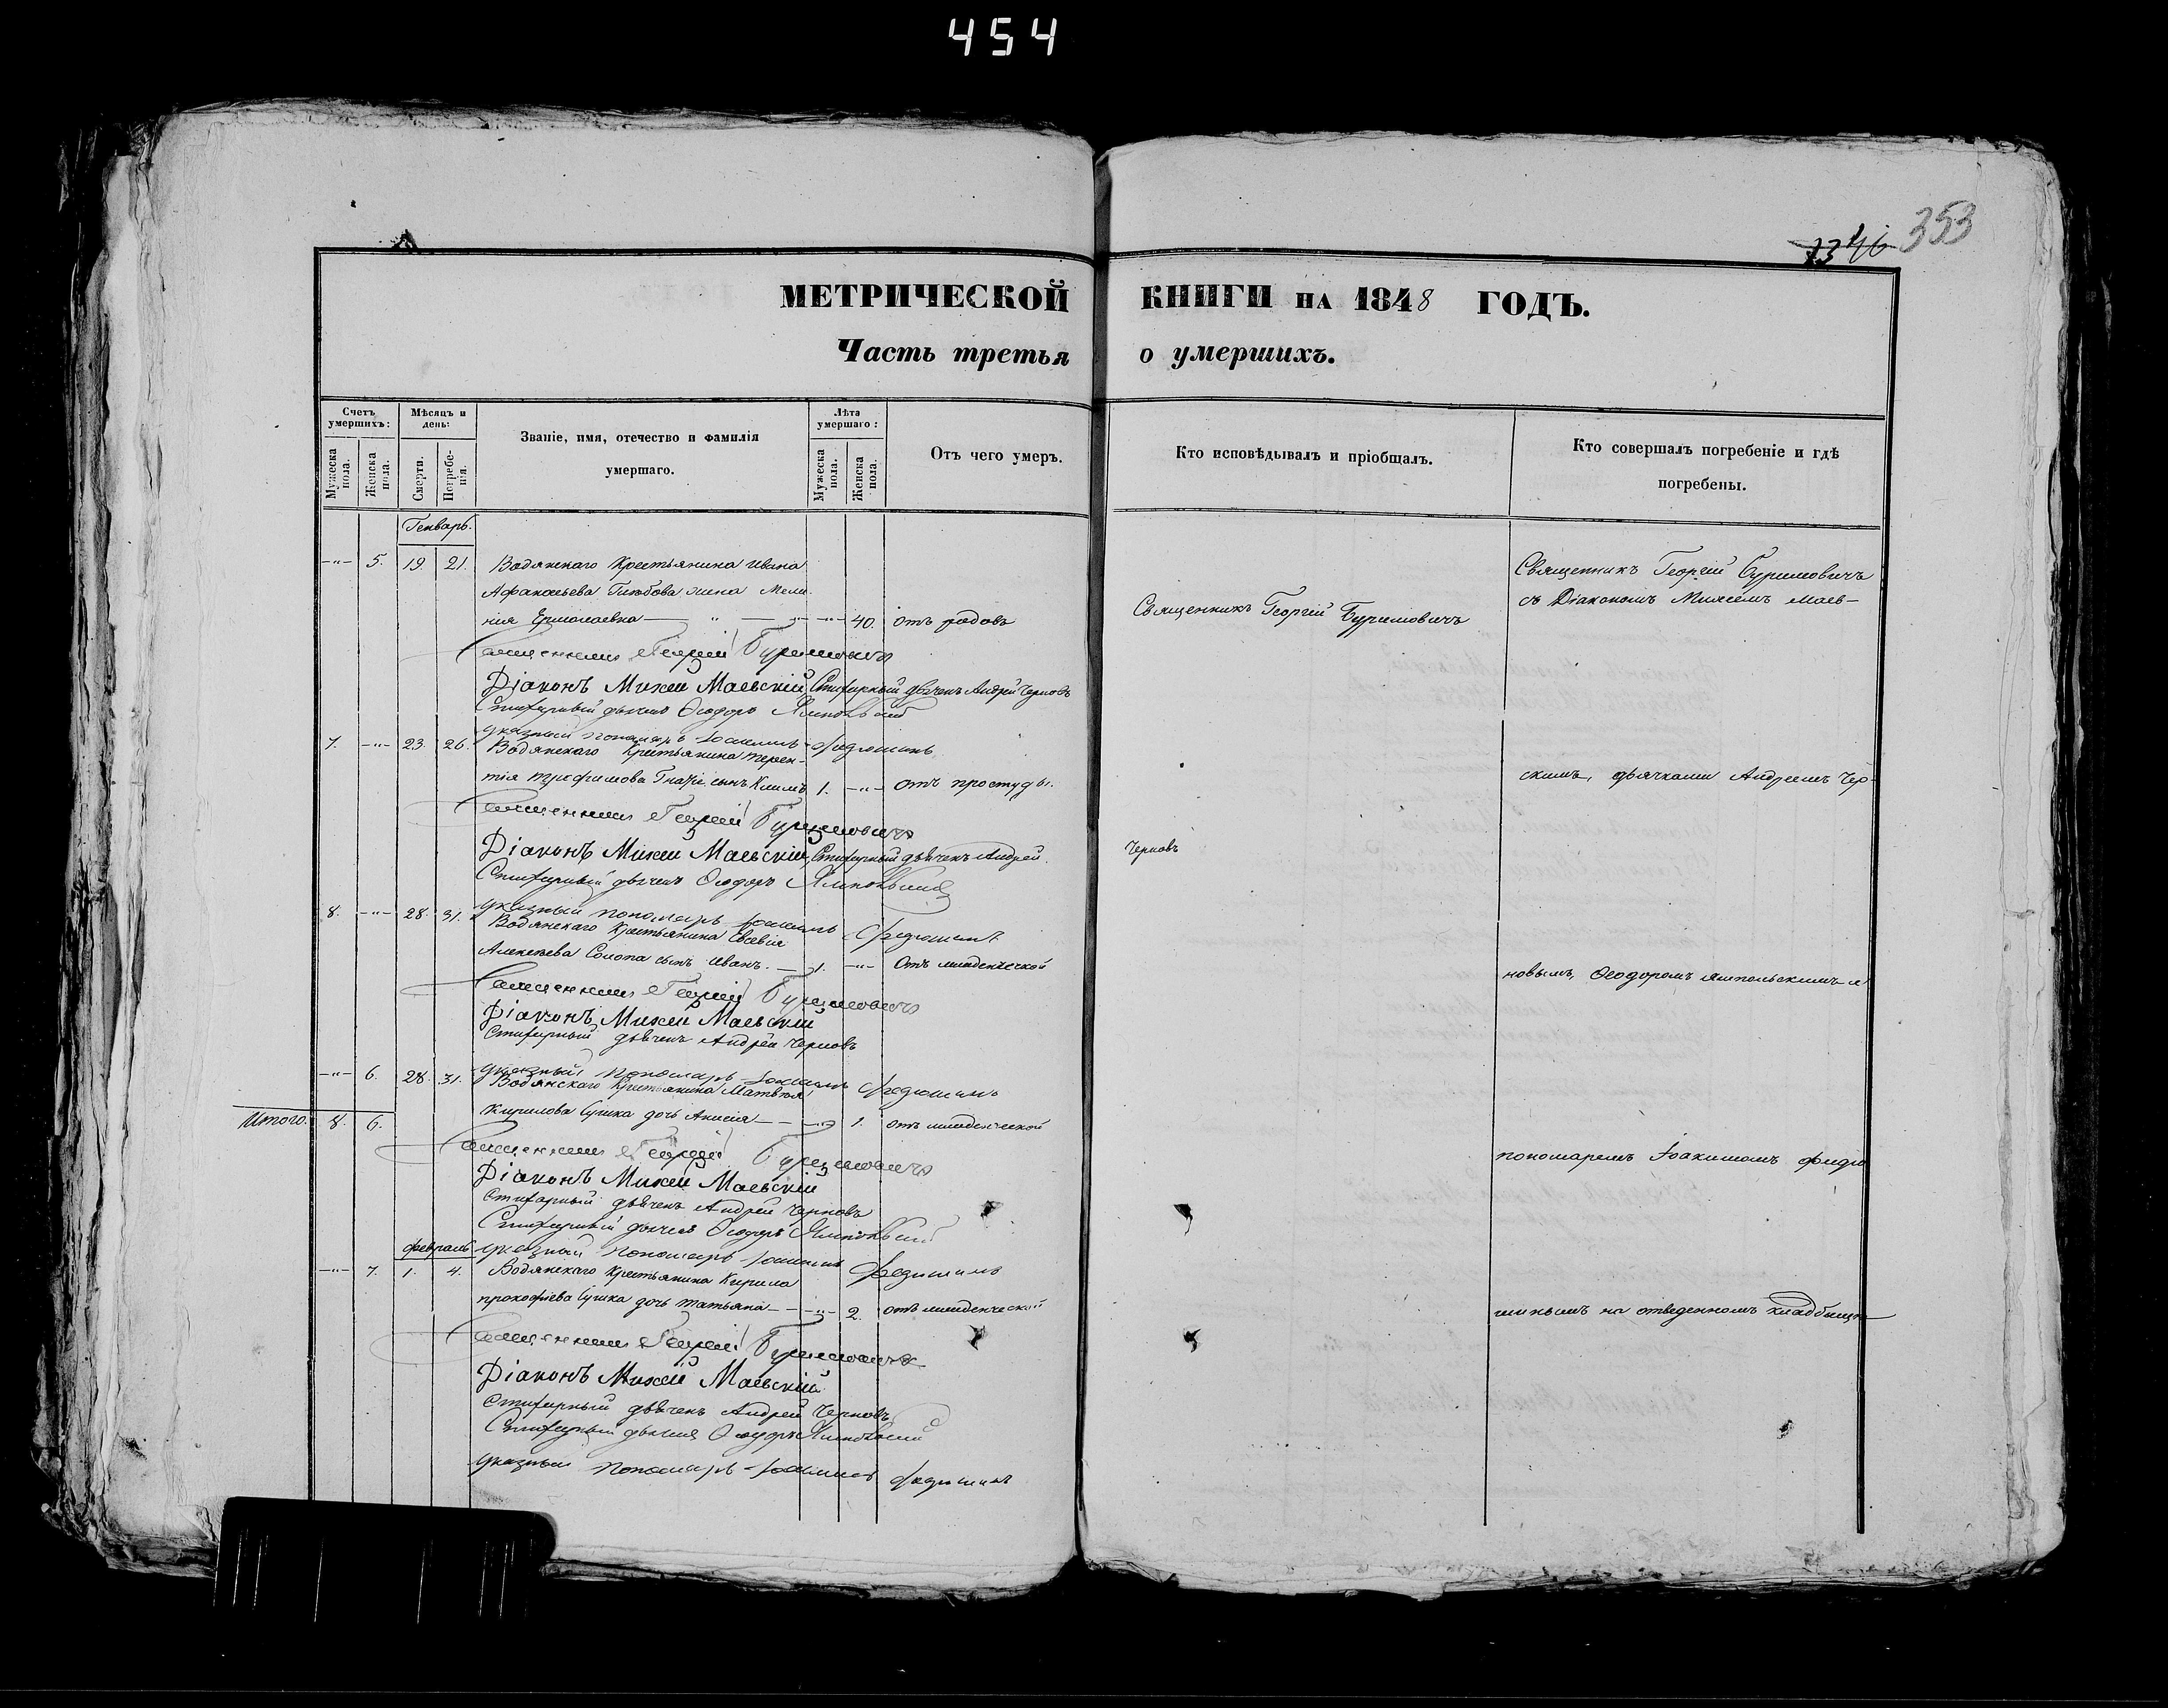 454
353
МЕТРИЧЕСКОЙ КНИГИ НА 1848 ГОДЪ.
Часть третья о умершихъ.
Счетъ умершихъ:
Мужеска пола.
Женска пола.
Мѣсяцъ и день:
Смерти.
Погребенія.
Званіе, имя, отечество и фамилія умершаго.
Лѣта умершаго:
Мужеска пола.
Женска пола.
Отъ чего умеръ.
Кто исповѣдывалъ и пріобщалъ.
Кто совершалъ погребеніе и гдѣ погребены.
Генварь.
-"- 5. 19. 21. Водянскаго Крестьянина Ивана
Афанасьева жена Мела-
нія Ермолаевна -"- 40. отъ родовъ
Священникъ Георгій Буримовичъ
Священникъ Георгій Буримовичъ
съ Діакономъ Михеемъ Маев-
Священникъ Георгій Буримовичъ
Діаконъ Михей Маевскій, Стихарный дьячекъ Андрей Черновъ
Стихарный дьячекъ Ѳеодоръ Ямпольскій
указный пономарь Іоакимъ Федюшинъ
7. -"- 23. 26. Водянскаго Крестьянина Терен-
тія Трофимова сынъ Климъ 1. -"- отъ простуды.
скимъ, дьячками Андреемъ Чер-
Священникъ Георгій Буримовичъ
Діаконъ Михей Маевскій, Стихарный дьячекъ Андрей Черновъ
Стихарный дьячекъ Ѳеодоръ Ямпольскій
указный пономарь Іоакимъ Федюшинъ
8. -"- 28. 31. Водянскаго Крестьянина Евсевія
Алексѣева Солопа сынъ Иванъ. 1. -"- Отъ младенческой
новымъ, Ѳеодоромъ Ямпольскимъ и
Священникъ Георгій Буримовичъ
Діаконъ Михей Маевскій
Стихарный дьячекъ Андрей Черновъ
указный пономарь Іоакимъ Федюшинъ
-"- 6. 28. 31. Водянскаго Крестьянина Матвѣя
Кирилова Сушка дочь Анисія -"- 1. отъ младенческой
Итого. 8. 6.
пономаремъ Іоакимомъ Федю
Священникъ Георгій Буримовичъ
Діаконъ Михей Маевскій
Стихарный дьячекъ Андрей Черновъ
Стихарный дьячекъ Ѳеодоръ Ямпольскій
указный пономарь Іоакимъ Федюшинъ
Февраль
-"- 7. 1. 4. Водянскаго Крестьянина Кирила
Прокофіева Сушка дочь Татьяна -"- 2. отъ младенческой
шинымъ на отведенномъ кладбищѣ
Священникъ Георгій Буримовичъ
Діаконъ Михей Маевскій
Стихарный дьячекъ Андрей Черновъ
Стихарный дьячекъ Ѳеодоръ Ямпольскій
указный пономарь Іоакимъ Федюшинъ